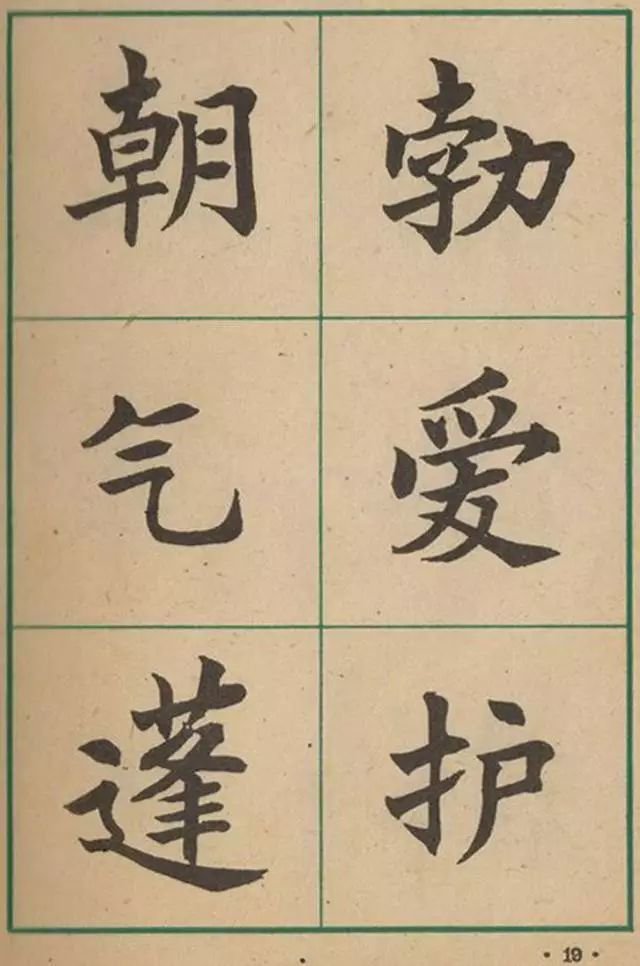 朝气蓬
勃爱护
·19·